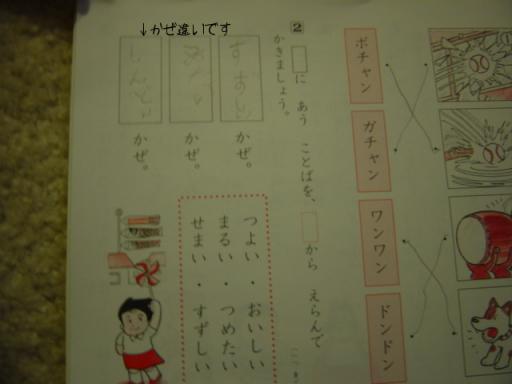 ↓かぜ違いです
ボチャン
ガチャン
ワンワン
ドンドン
2 □に あう ことばを、□から えらんで
かきましょう。
すずしい かぜ。
つめたい かぜ。
しんどい かぜ。
つよい・おいしい
まるい・つめたい
せまい・すずしい